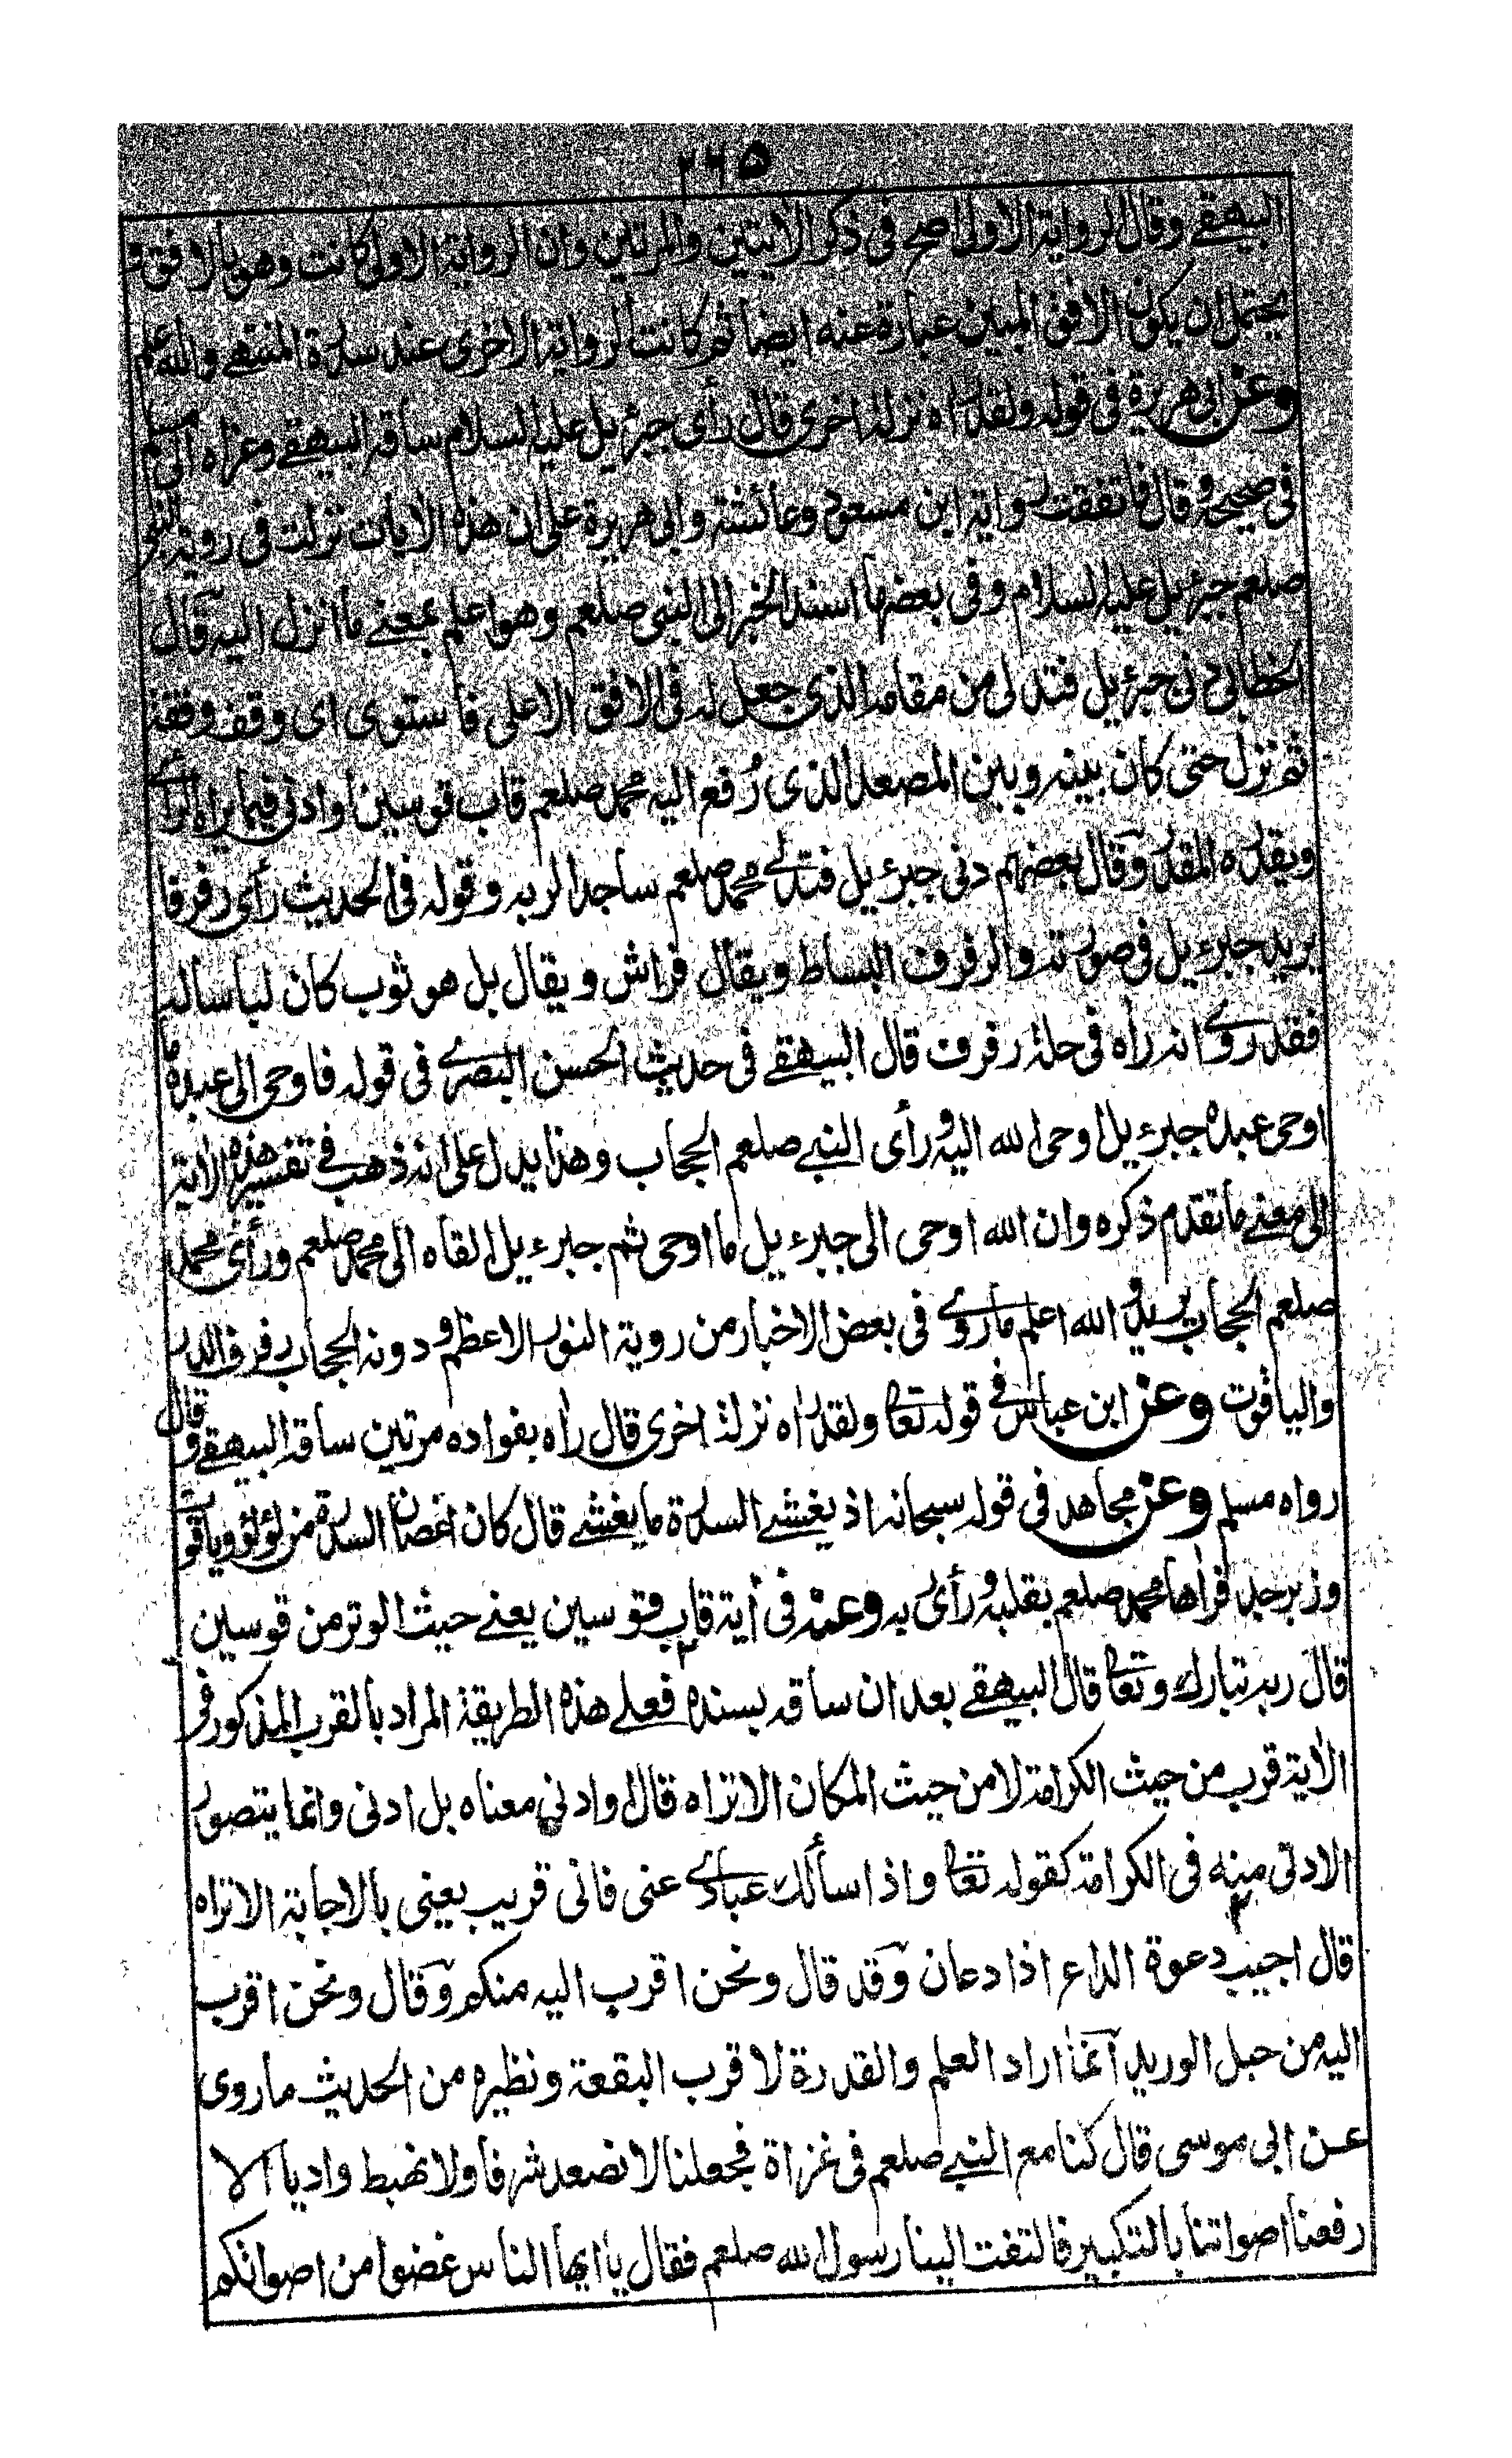 ٢٦٥
البيهقے وقال الرواية الاولى اصح فی ذكر الايتين والمرتين وان الرواية الاولى كانت وهو بالافق و
يحتمل ان يكون الافق المبين عبارة عنه ايضا ثم كانت الرواية الاخرى عند سدرة المنتهے والله اعلم
وعن ابی هريرة فی قوله ولقد راٰه نزلة اخرى قال رأى جبرئيل عليه السلام ساقه البيهقے وعزاه الى مسلم
فی صحيحه وقال فاتفقت رواية ابن مسعود وعائشة وابی هريرة على ان هذه الايات نزلت فی روية النبی
صلعم جبرئيل عليه السلام وفی بعضها اسند الخبر الى النبی صلعم وهو اعلم بمعنے ما انزل اليه قال
الخطابی دنى جبرئيل فتدلى من مقامه الذی جعل له فی الافق الاعلى فاستوى ای وقف وقفة
ثم نزل حتى كان بينه وبين المصعد الذی رُفع اليه محمد صلعم قاب قوسين او ادنى فيما يراه الرائے
ويقدره المقدر وقال بعضهم دنى جبرءيل فتدلے محمد صلعم ساجدا لربه وقوله فی الحديث رأى رفرفا
يريد جبرءيل فی صورته والرفرف البساط ويقال فراش ويقال بل هو ثوب كان لباسا له
فقد روے انه راٰه فی حلة رفرف قال البيهقے فی حديث الحسن البصرے فی قوله فاوحى الى عبده ما
اوحى عبده جبرءيل اوحى الله اليه ورأى النبے صلعم الحجاب وهذا يدل على انه ذهب فے تفسير هذه الاٰية
الى معنے ما تقدم ذكره وان الله اوحى الى جبرءيل ما اوحى ثم جبرءيل القاه الى محمد صلعم ورأى محمد
صلعم الحجاب يريد والله اعلم ما روے فی بعض الاخبار من روية النور الاعظم ودونه الحجاب رفرف الدر
والياقوت وعن ابن عباس فی قوله تعا ولقد راٰه نزلة اخرى قال راٰه بفواده مرتين ساقه البيهقے وقال
رواه مسلم وعن مجاهد فی قوله سبحانه اذ يغشے السدرة ما يغشے قال كان اغصان السدرة من لؤلؤ وياقوت
وزبرجد فراٰها محمد صلعم بقلبه ورأى ربه وعنه فی أية قاب قوسين يعنے حيث الوتر من قوسين
قال ربه تبارك وتعا قال البيهقے بعد ان ساقه بسنده فعلے هذه الطريقة المراد بالقرب المذكور فی
الاٰية قرب من حيث الكرامة لا من حيث المكان الا تراه قال او ادنى معناه بل ادنى وانما يتصور
الادنى منه فی الكرامة كقوله تعا واذا سألك عبادے عنی فانی قريب يعنی بالاجابة الا تراه
قال اجيب دعوة الداع اذا دعان وقد قال ونحن اقرب اليه منكم وقال ونحن اقرب
اليه من حبل الوريد انما اراد العلم والقدرة لا قرب البقعة ونظيره من الحديث ما روى
عن ابی موسى قال كنا مع النبے صلعم فی غزاة فجعلنا لا نصعد شرفا ولا نهبط واديا الا
رفعنا اصواتنا بالتكبير فالتفت الينا رسول الله صلعم فقال يا ايها الناس غضوا من اصواتكم